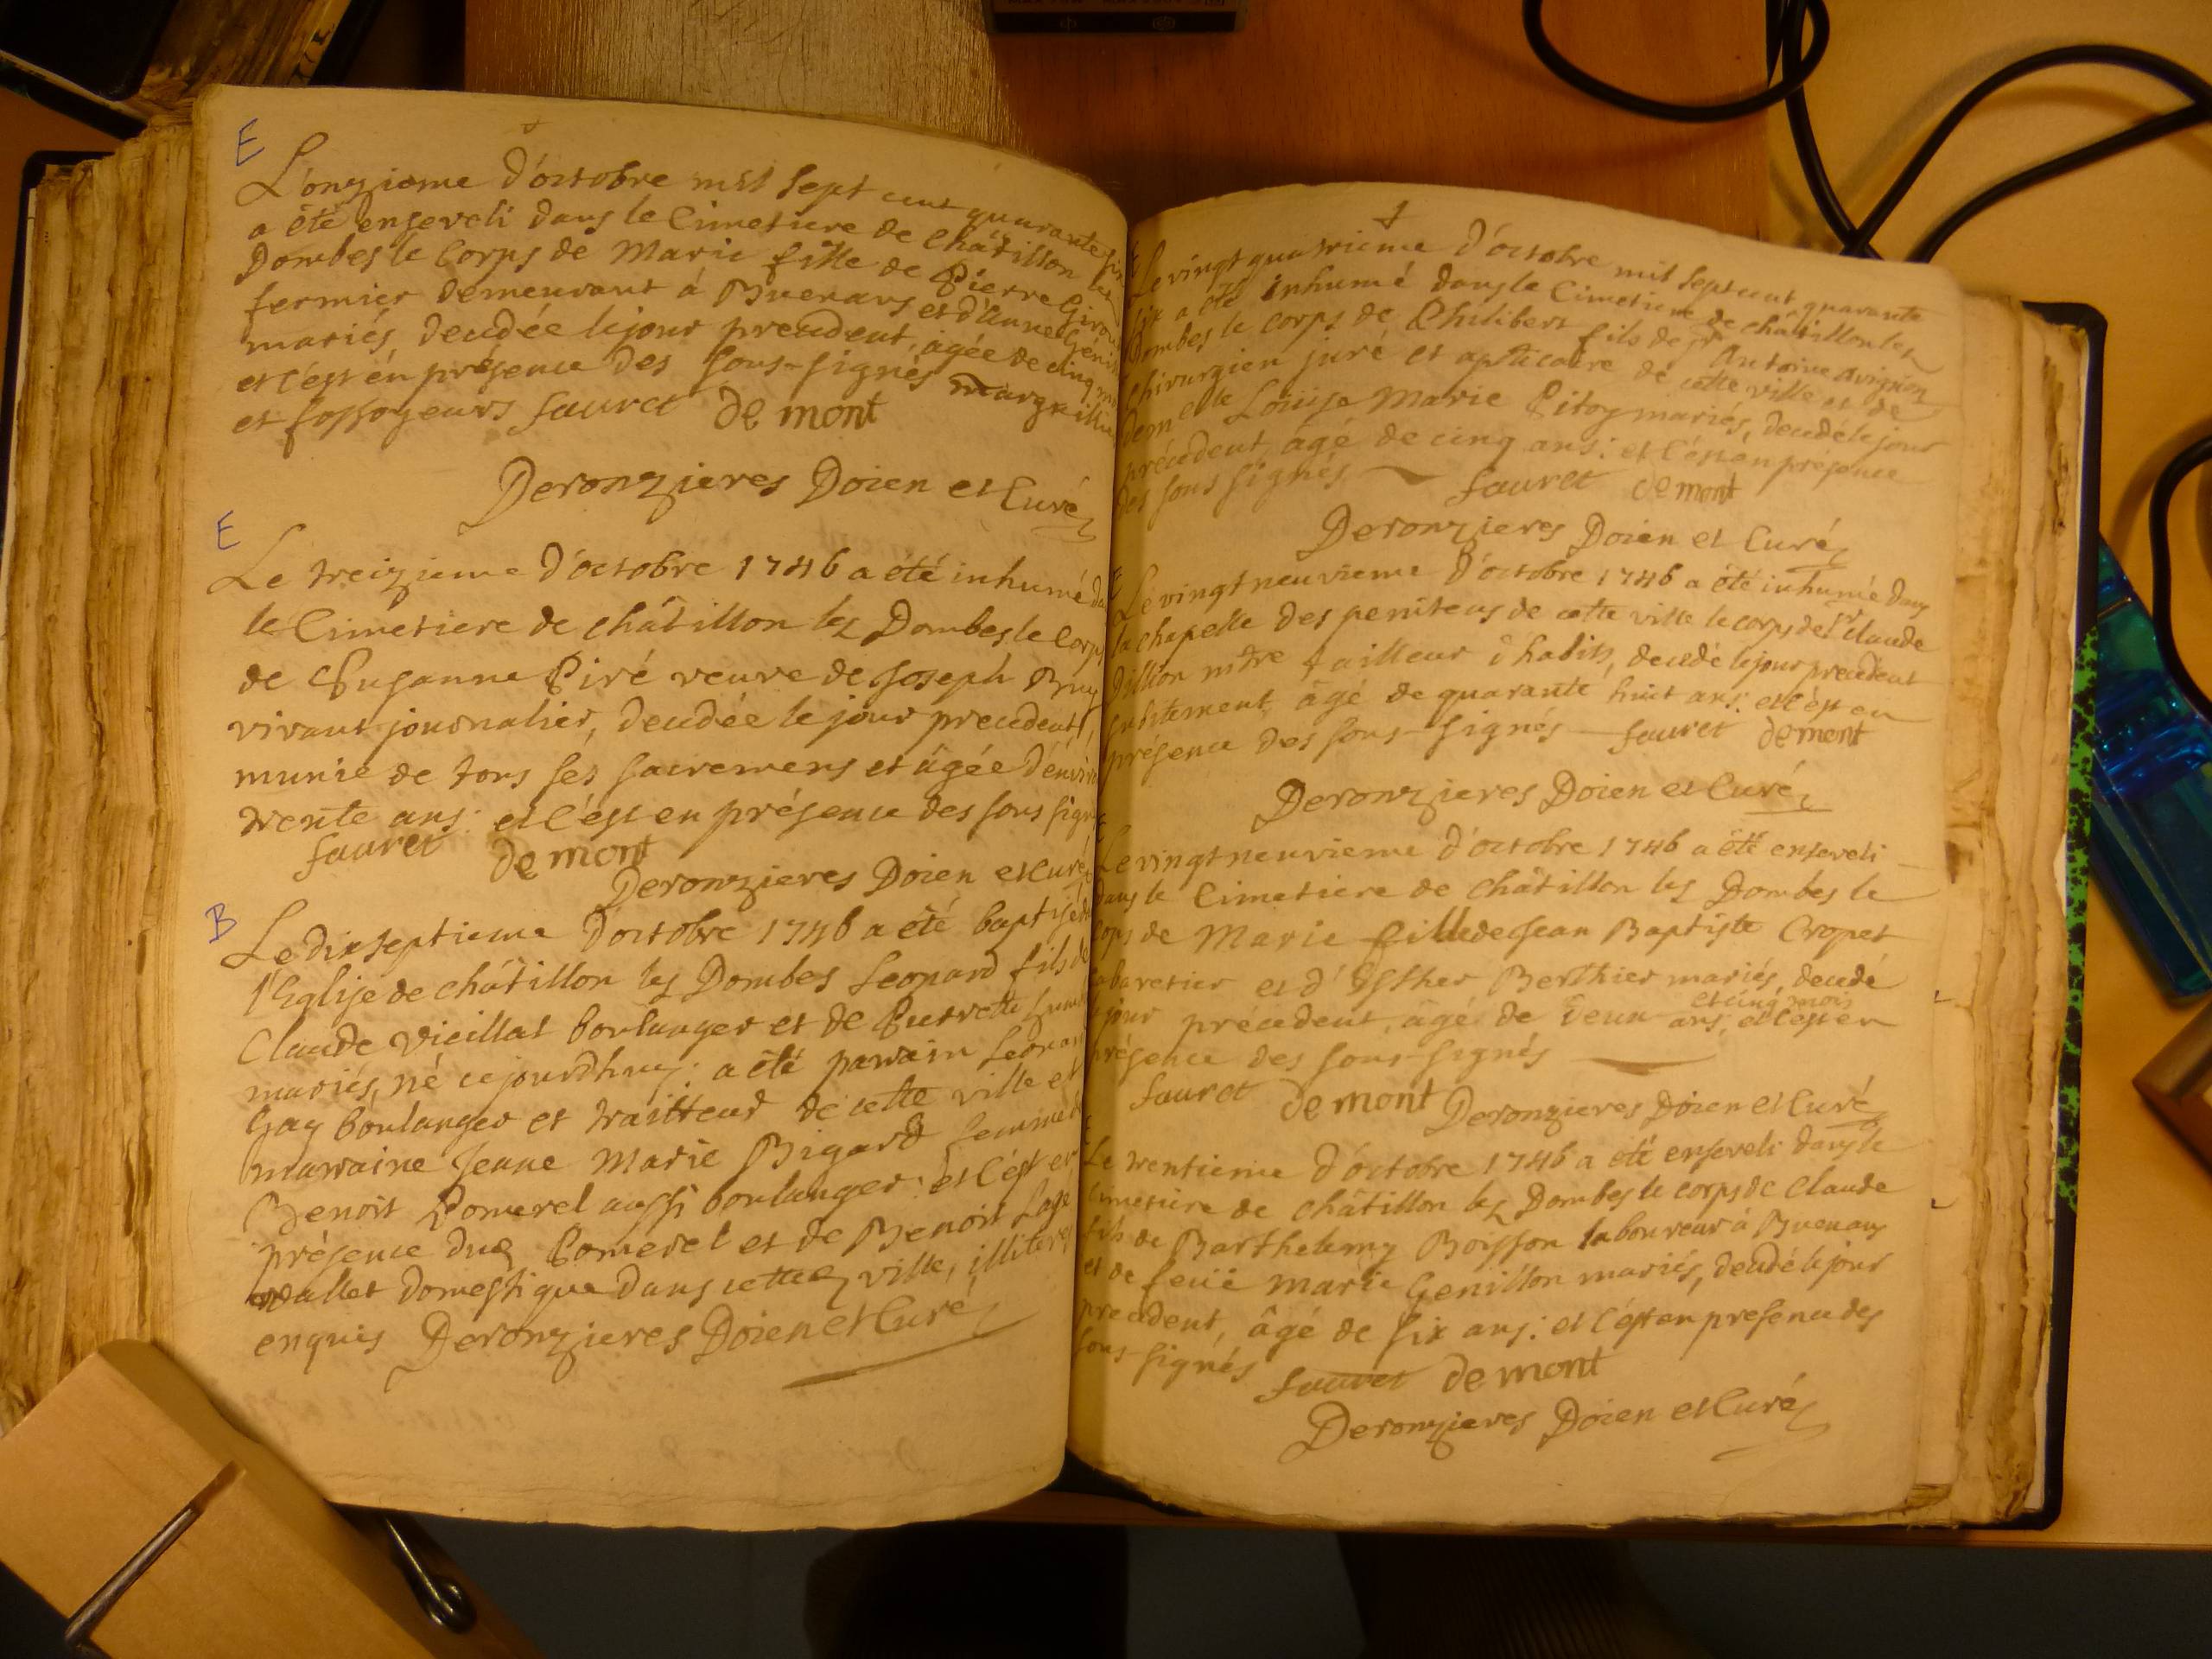 E
L'onzieme d'octobre mil sept cent quarante six
a été enseveli dans le Cimetiere de châtillon les
Dombes le Corps de Marie fille de Pierre Girou
fermier demeurant á Buenans et d'Anne Géni
mariés, decedée le jour precedent, agée de cinq
et c'est én présence des sous-signés marguillier
et fossoyeurs fauret de mont
Deronzieres Doien et Curé
E
Le treizieme d'octobre 1746 a été inhumé
le Cimetiere de châtillon les Dombes le Corps
de Susanne Piré veuve de Joseph
vivant journalier, decedée le jour precedent,
munie de tous ses sacremens et âgée d'envir
trente ans: et c'ést en présence des sous sign
fauret de mont
Deronzieres Doien et Curé
B
Le dix septieme d'octobre 1746 a été baptisé
l'Eglise de châtillon les Dombes Leonard fils de
Claude Vieillat boulanger et de Pierrette
mariés, né cejourdhuy: a été parrain Leonard
Gay boulanger et traitteur de cette ville et
marraine Jeanne Marie Bigard femme de
Benoit Pomerel aussi boulanger: et c'ést en
présence dud Pomerel et de Benoit
vallet domestique dans cette ville, illiteres
enquis Deronzieres Doien et Curé
Le vingt quatrieme d'octobre mil sept cent quarante
six a été inhumé dans le Cimetiere de châtillon les
Dombes le corps de Philibert fils de Sr Antoine Avignon
chirurgien juré et apoticaire de cette ville et de
demelle Loüise Marie Pitoy mariés, decedé le jour
précedent, âgé de cinq ans: et c'ést en présence
des sous signés fauret de mont
Deronzieres Doien et Curé
Le vingt neuvieme d'octobre 1746 a été inhumé dans
la chapelle des penitens de cette ville le corps de Sr Claude
Dillion mtre tailleur d'habits, decedé le jour precedent
subitement, âgé de quarante huit ans: et c'ést en
présence des sous-signés fauret de mont
Deronzieres Doien et Curé
Le vingt neuvieme d'octobre 1746 a été enseveli
dans le Cimetiere de châtillon les Dombes le
corps de Marie fille de Jean Baptiste Cropet
cabaretier et d'Esther Berthier mariés, decedé
le jour précedent, âgé de deux ans et cinq mois, et c'est en
présence des sous-signés
fauret de mont Deronzieres Doien et Curé
Le trentieme d'octobre 1746 a été enseveli dans le
Cimetiere de châtillon les Dombes le corps de Claude
fils de Barthelemy Boisson laboureur à Buenans
et de feüe Marie Genillon mariés, decedé le jour
precedent, âgé de six ans: et c'ést en presence des
sous-signés fauret de mont
Deronzieres Doien et Curé